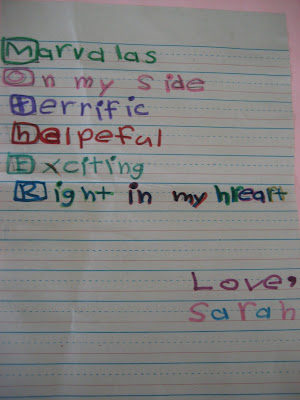 Marvalas
On my side
terrific
helpeful
Exciting
Right in my hreart
Love,
Sarah